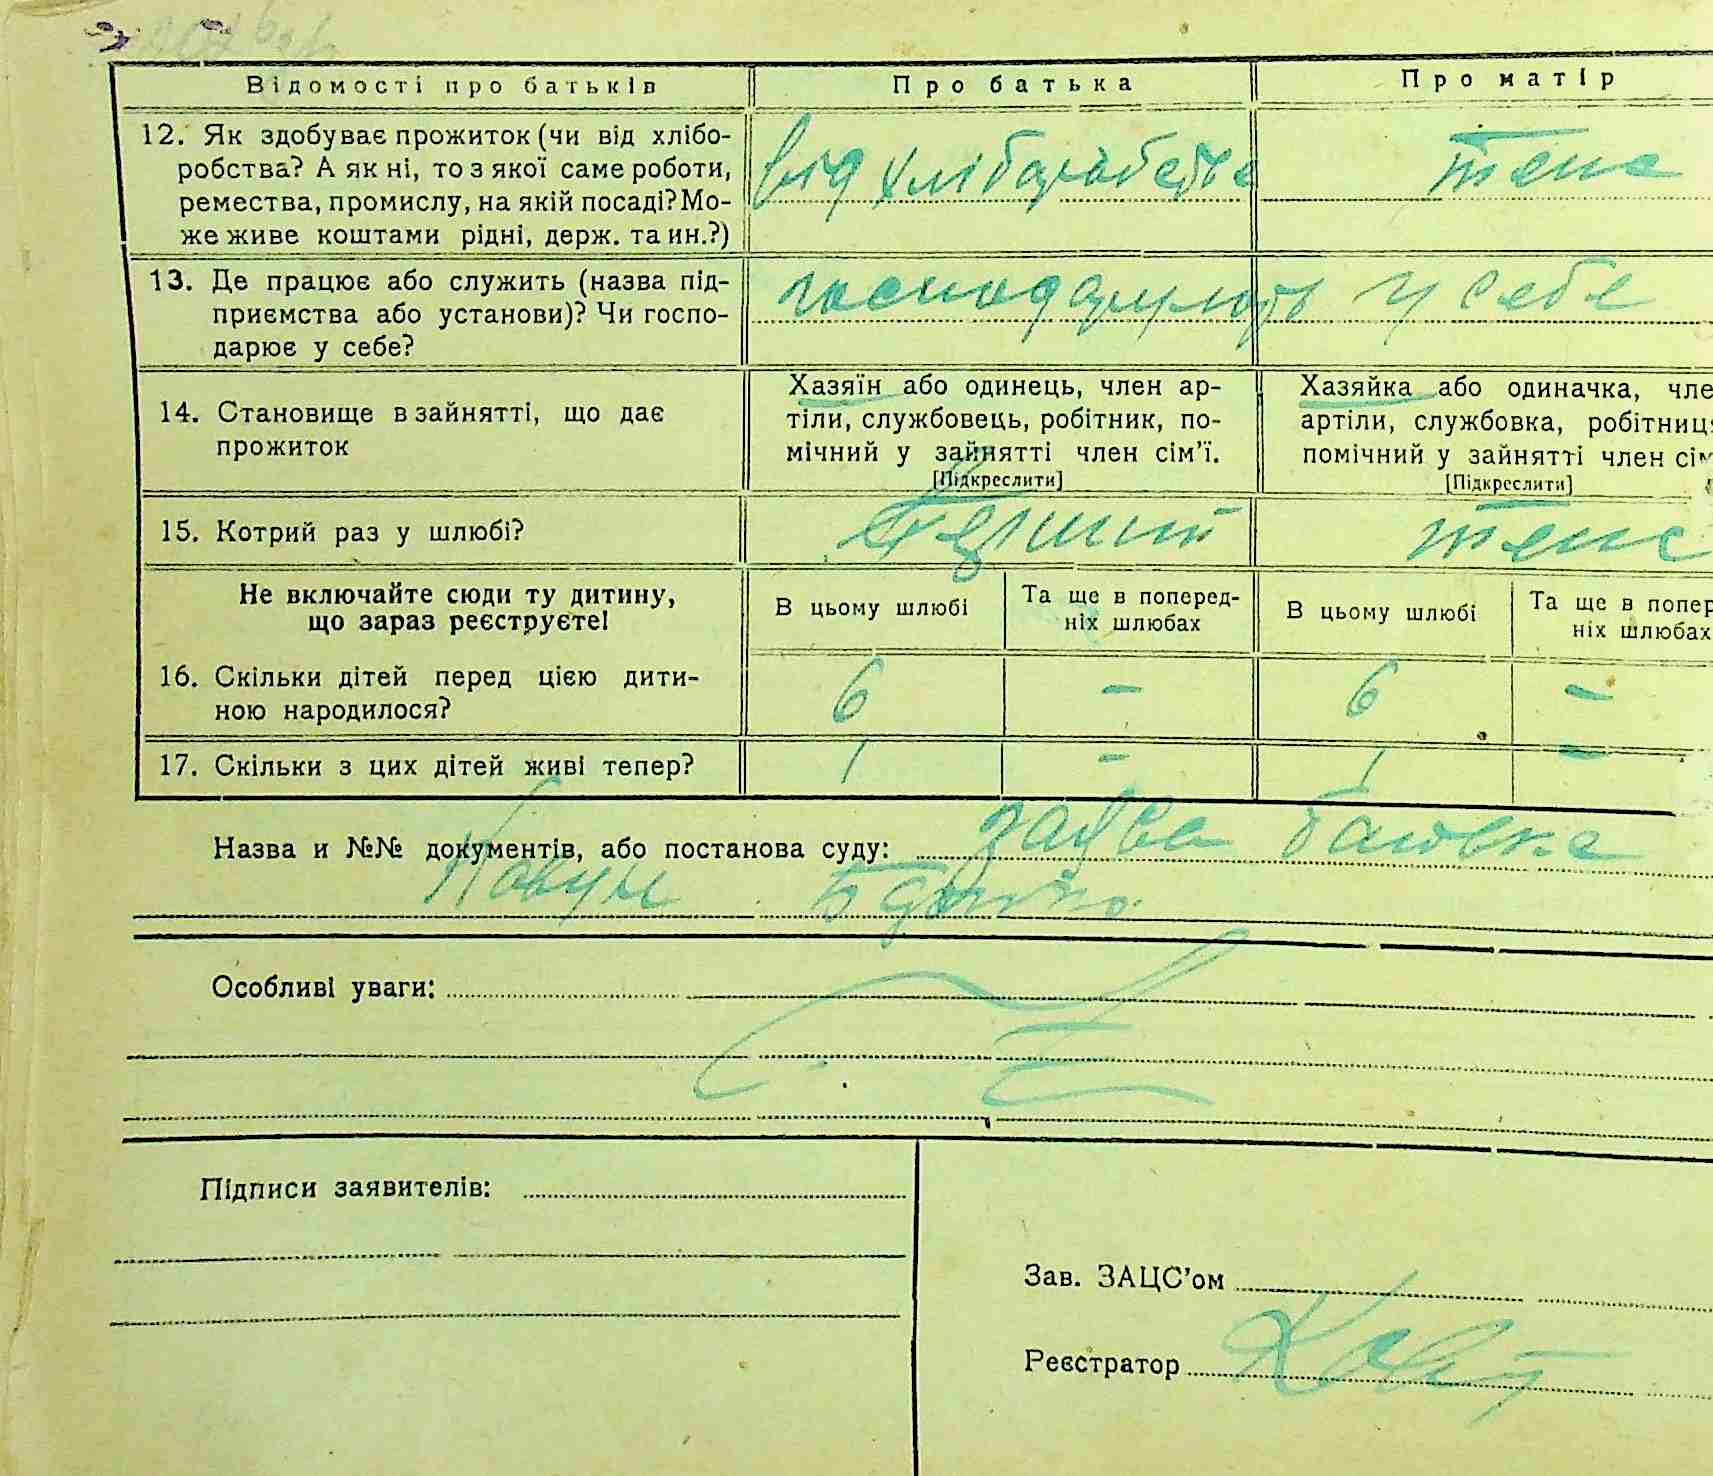 Відомості про батьків Про батька Про матір
12. Як здобуває прожиток (чи від хлібо-
робства? А як ні, то з якої саме роботи,
ремества, промислу, на якій посаді? Мо-
же живе коштами рідні, держ. та ин.?)
від хліборобства теж
13. Де працює або служить (назва під-
приємства або установи)? Чи госпо-
дарює у себе?
господарують у себе
14. Становище в зайнятті, що дає
прожиток
Хазяїн або одинець, член ар-
тіли, службовець, робітник, по-
мічний у зайнятті член сім'ї.
[Підкреслити]
Хазяйка або одиначка, чле
артіли, службовка, робітниц
помічний у зайнятті член сім
[Підкреслити]
15. Котрий раз у шлюбі? Перший теж
Не включайте сюди ту дитину,
що зараз реєструєте!
В цьому шлюбі
Та ще в поперед-
ніх шлюбах
В цьому шлюбі
Та ще в попер
ніх шлюбах
16. Скільки дітей перед цією дити-
ною народилося?
6 – 6 –
17. Скільки з цих дітей живі тепер? 1 – 1 –
Назва и №№ документів, або постанова суду: заява батька
Ковун
Особливі уваги:
Підписи заявителів:
Зав. ЗАЦС'ом
Реєстратор